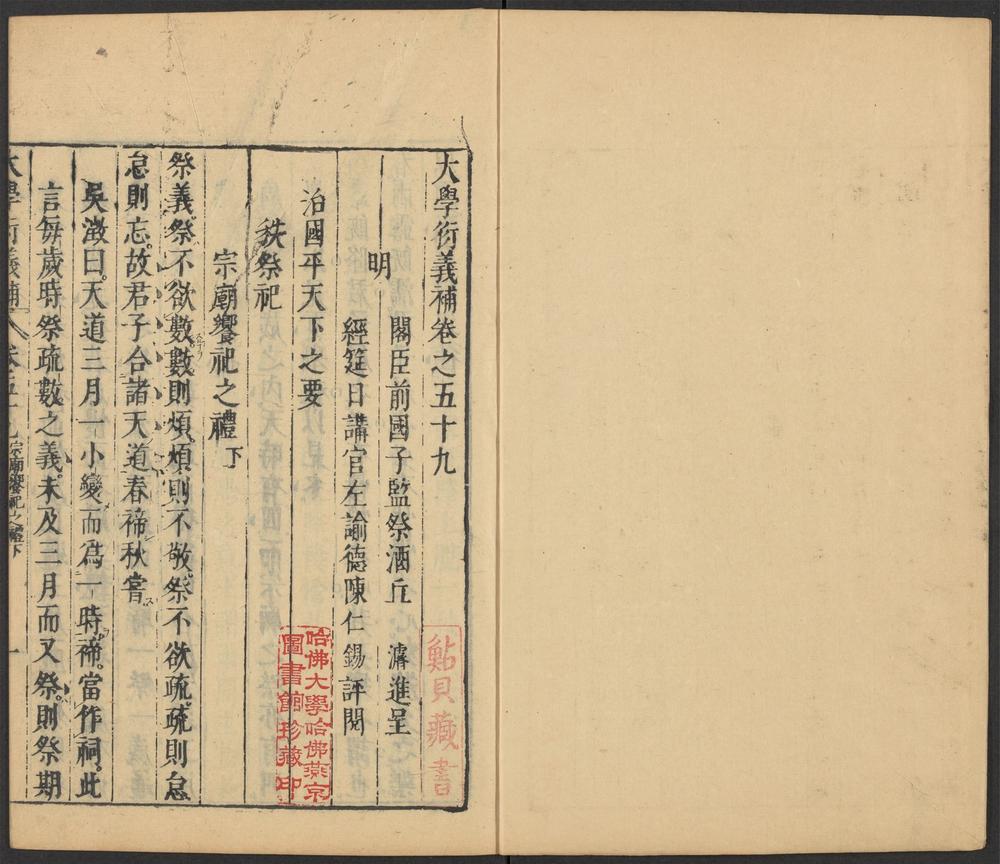 大學衍義補卷之五十九
明 閣臣前國子監祭酒丘 濬進呈
經筵日講官左諭德陳仁錫評閱
治國平天下之要
秩祭祀
宗廟饗祀之禮下
祭義祭不欲數數則煩煩則不敬祭不欲疏疏則怠
怠則忘故君子合諸天道春禘秋嘗
吳澂曰天道三月一小變而爲一時禘當作祠此
言每歲時祭疏數之義未及三月而又祭則祭期
大學衍義補 卷五十九 宗廟饗祀之禮下 一
鮎貝藏書
哈佛大學哈佛燕京
圖書館珍藏印